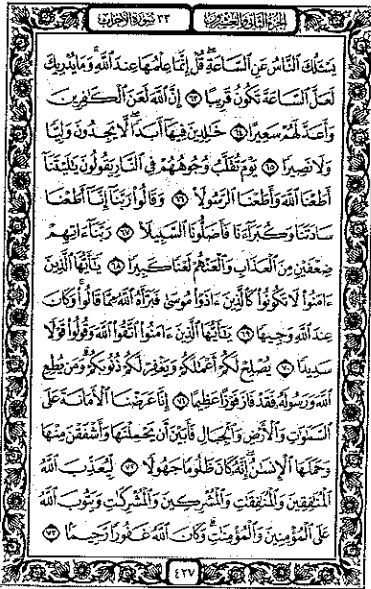 الجزء الثاني والعشرون
٣٣ سورة الأحزاب
يَسْـَٔلُكَ ٱلنَّاسُ عَنِ ٱلسَّاعَةِ قُلْ إِنَّمَا عِلْمُهَا عِندَ ٱللَّهِ وَمَا يُدْرِيكَ
لَعَلَّ ٱلسَّاعَةَ تَكُونُ قَرِيبًا ٦٣ إِنَّ ٱللَّهَ لَعَنَ ٱلْكَٰفِرِينَ
وَأَعَدَّ لَهُمْ سَعِيرًا ٦٤ خَٰلِدِينَ فِيهَآ أَبَدًا لَّا يَجِدُونَ وَلِيًّا
وَلَا نَصِيرًا ٦٥ يَوْمَ تُقَلَّبُ وُجُوهُهُمْ فِى ٱلنَّارِ يَقُولُونَ يَٰلَيْتَنَآ
أَطَعْنَا ٱللَّهَ وَأَطَعْنَا ٱلرَّسُولَا۠ ٦٦ وَقَالُوا۟ رَبَّنَآ إِنَّآ أَطَعْنَا
سَادَتَنَا وَكُبَرَآءَنَا فَأَضَلُّونَا ٱلسَّبِيلَا۠ ٦٧ رَبَّنَآ ءَاتِهِمْ
ضِعْفَيْنِ مِنَ ٱلْعَذَابِ وَٱلْعَنْهُمْ لَعْنًا كَبِيرًا ٦٨ يَٰٓأَيُّهَا ٱلَّذِينَ
ءَامَنُوا۟ لَا تَكُونُوا۟ كَٱلَّذِينَ ءَاذَوْا۟ مُوسَىٰ فَبَرَّأَهُ ٱللَّهُ مِمَّا قَالُوا۟ وَكَانَ
عِندَ ٱللَّهِ وَجِيهًا ٦٩ يَٰٓأَيُّهَا ٱلَّذِينَ ءَامَنُوا۟ ٱتَّقُوا۟ ٱللَّهَ وَقُولُوا۟ قَوْلًا
سَدِيدًا ٧٠ يُصْلِحْ لَكُمْ أَعْمَٰلَكُمْ وَيَغْفِرْ لَكُمْ ذُنُوبَكُمْ وَمَن يُطِعِ
ٱللَّهَ وَرَسُولَهُۥ فَقَدْ فَازَ فَوْزًا عَظِيمًا ٧١ إِنَّا عَرَضْنَا ٱلْأَمَانَةَ عَلَى
ٱلسَّمَٰوَٰتِ وَٱلْأَرْضِ وَٱلْجِبَالِ فَأَبَيْنَ أَن يَحْمِلْنَهَا وَأَشْفَقْنَ مِنْهَا
وَحَمَلَهَا ٱلْإِنسَٰنُ إِنَّهُۥ كَانَ ظَلُومًا جَهُولًا ٧٢ لِّيُعَذِّبَ ٱللَّهُ
ٱلْمُنَٰفِقِينَ وَٱلْمُنَٰفِقَٰتِ وَٱلْمُشْرِكِينَ وَٱلْمُشْرِكَٰتِ وَيَتُوبَ ٱللَّهُ
عَلَى ٱلْمُؤْمِنِينَ وَٱلْمُؤْمِنَٰتِ وَكَانَ ٱللَّهُ غَفُورًا رَّحِيمًۢا ٧٣
٤٢٧